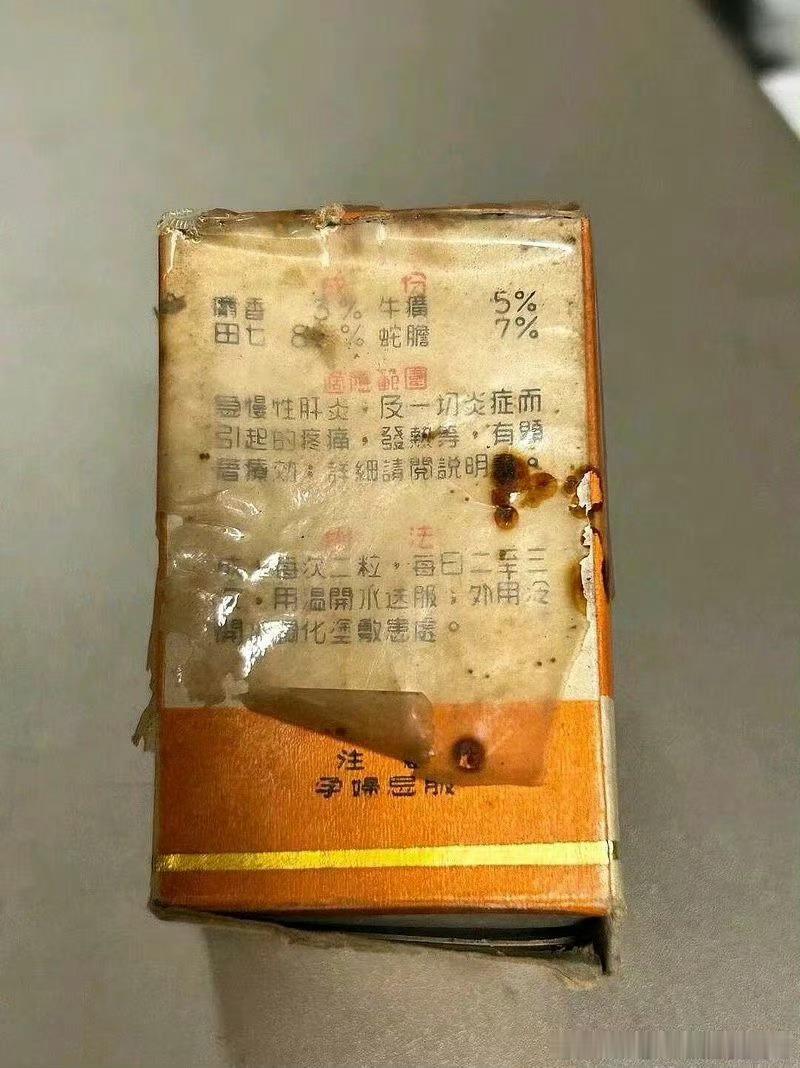 成份
麝香 3% 牛癀 5%
田七 8 % 蛇膽 7%
適應範圍
急慢性肝炎，及一切炎症而
引起的疼痛，發熱等，有顯
著療效；詳細請閱說明。
法
每次二粒，每日二至三
，用温開水送服；外用冷
開水化塗敷患處。
注
孕婦忌服